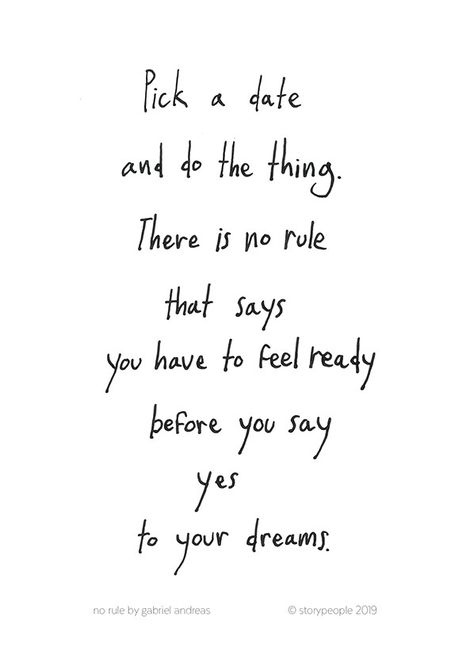 Pick a date
and do the thing.
There is no rule
that says
you have to feel ready
before you say
yes
to your dreams.
no rule by gabriel andreas © storypeople 2019